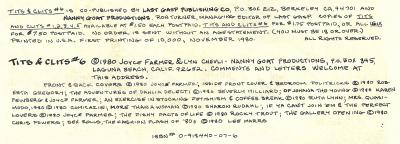 TITS & CLITS #6 IS CO-PUBLISHED BY LAST GASP PUBLISHING CO, P.O. BOX 212, BERKELEY CA, 94701 AND
NANNY GOAT PRODUCTIONS. RON TURNER, MANAGING EDITOR OF LAST GASP. COPIES OF TITS
AND CLITS # 1, 2, 3, 4, 5 AVAILABLE AT $1.50 EACH POSTPAID. TITS AND CLITS #6 FOR $1.75 POSTPAID, OR ALL
FOR $7.50 POSTPAID. NO ORDER IS SENT WITHOUT AN AGE STATEMENT. (YOU MUST BE 18 OR OVER)
PRINTED IN U.S.A. FIRST PRINTING OF 10,000, NOVEMBER 1980. ALL RIGHTS RESERVED.
TITS & CLITS #6 © 1980 JOYCE FARMER & LYN CHEVLI - NANNY GOAT PRODUCTIONS, P.O. BOX 845,
LAGUNA BEACH, CALIF. 92652. COMMENTS AND LETTERS WELCOME AT
THIS ADDRESS.
FRONT & BACK COVERS © 1980 JOYCE FARMER, INSIDE FRONT COVER & BEDROOM POLITICKS © 1980 ROB-
ERTA GREGORY; THE ADVENTURES OF DAHLIA DELECT © 1980 BEVERLY HILLIARD; OF JOHANNA THE YOUNG © 1980 KAREN
FEINBERG & JOYCE FARMER; AN EXERCISE IN STOCKING FETISHISM & COFFEE BREAK © 1980 RUTH LYNN; MRS. QUASI-
MODO, 1980 © 1980 COMICAZIE; MORE THAN A WOMAN © 1980 SHARON RUDAHL; IF YA CAN'T JOIN 'EM & THE PERFECT
LOVERS © 1980 JOYCE FARMER; THE PINKY FACTS OF LIFE © 1980 ROCKY TROUT; THE GALLERY OPENING © 1980
CHRIS POWERS; SEX SOLOS, THE FACKING FLASH OF '80'S © 1980 LEE MARRS
ISBN # 0-919440-07-6